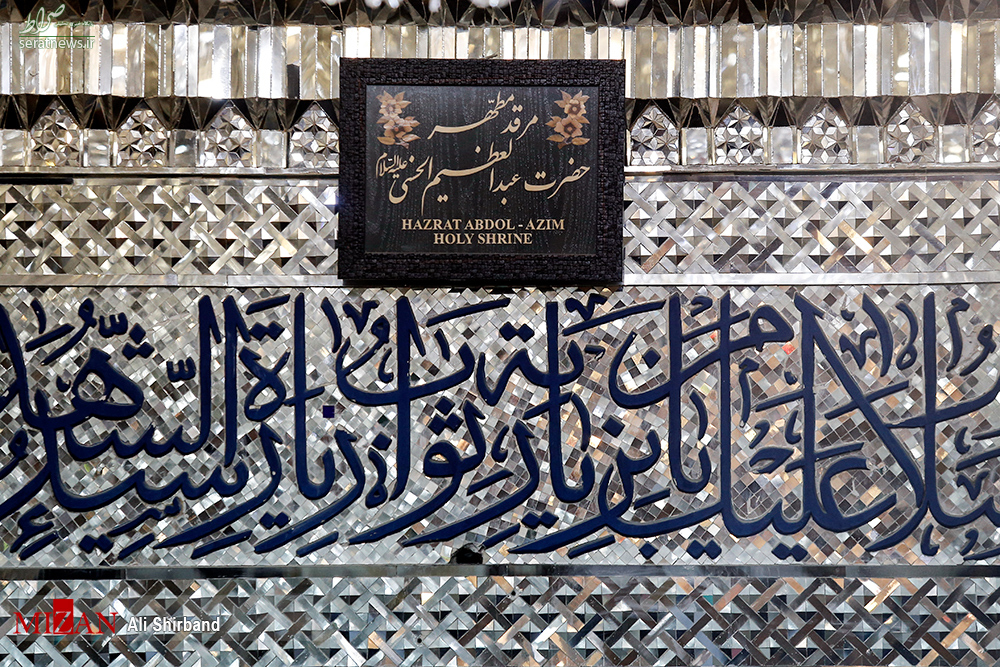 صراط
seratnews.ir
مرقد مطهّر
حضرت عبدالعظیم الحسنی علیه‌السلام
HAZRAT ABDOL - AZIM
HOLY SHRINE
السَّلامُ عَلَیْکَ یا مَنْ بِزِیارَتِهِ ثَوابُ زِیارَةِ سَیِّدِ الشُّهَداءِ
MIZAN Ali Shirband